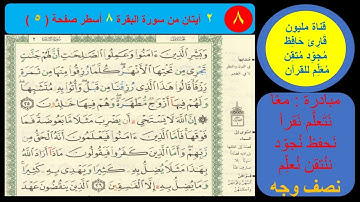 ٨
٢ آيتان من سورة البقرة ٨ أسطر صفحة (٥)
قناة مليون
قارئ حافظ
مُجوّد مُتقن
مُعلّم للقرآن
مبادرة : معًا
نَتعلّم نَقرأ
نُحفظ نُجوّد
نُتقن نُعلّم
نصف وجه
وَبَشِّرِ الَّذِينَ ءَامَنُوا وَعَمِلُوا الصَّالِحَاتِ أَنَّ لَهُمْ جَنَّاتٍ
تَجْرِي مِن تَحْتِهَا الْأَنْهَارُ كُلَّمَا رُزِقُوا مِنْهَا مِن ثَمَرَةٍ
رِّزْقًا قَالُوا هَٰذَا الَّذِي رُزِقْنَا مِن قَبْلُ وَأُتُوا بِهِ مُتَشَابِهًا
وَلَهُمْ فِيهَا أَزْوَاجٌ مُّطَهَّرَةٌ وَهُمْ فِيهَا خَالِدُونَ ٢٥
إِنَّ اللَّهَ لَا يَسْتَحْيِي أَن يَضْرِبَ مَثَلًا مَّا بَعُوضَةً فَمَا
فَوْقَهَا فَأَمَّا الَّذِينَ ءَامَنُوا فَيَعْلَمُونَ أَنَّهُ الْحَقُّ مِن
رَّبِّهِمْ وَأَمَّا الَّذِينَ كَفَرُوا فَيَقُولُونَ مَاذَا أَرَادَ اللَّهُ
بِهَٰذَا مَثَلًا يُضِلُّ بِهِ كَثِيرًا وَيَهْدِي بِهِ كَثِيرًا وَمَا
يُضِلُّ بِهِ إِلَّا الْفَاسِقِينَ ٢٦ الَّذِينَ يَنقُضُونَ عَهْدَ